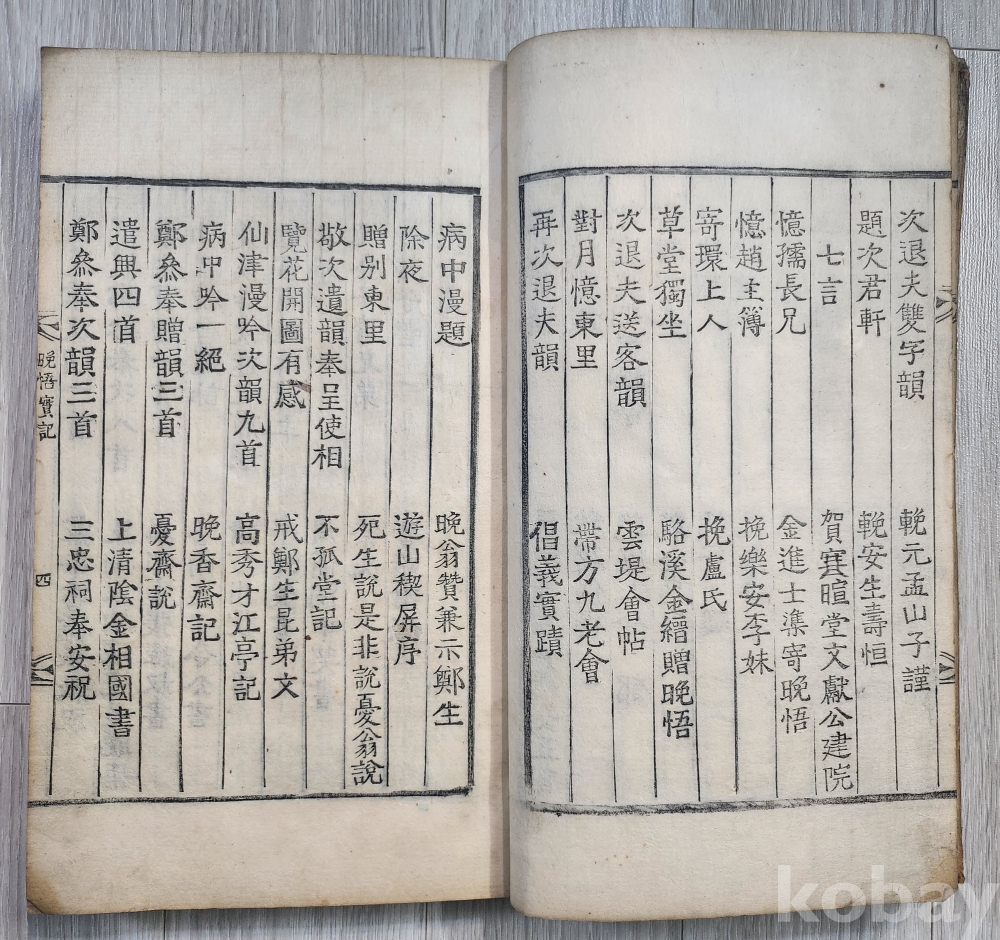 次退夫雙字韻 輓元孟山子謹
題次君軒 輓安生壽恒
七言 賀寒暄堂文獻公建院
憶孺長兄 金進士準寄晩悟
憶趙主簿 挽樂安李妹
寄環上人 挽盧氏
草堂獨坐 駱溪金縉贈晩悟
次退夫送客韻 雲堤會帖
對月憶東里 帶方九老會
再次退夫韻 倡義實蹟
病中漫題 晩翁贊兼示鄭生
除夜 遊山稧屛序
贈別東里 死生說是非說憂翁說
敬次遣韻奉呈使相 不孤堂記
覽花開圖有感 戒鄭生昆弟文
仙津漫吟次韻九首 高秀才江亭記
病中吟一絕 晩香齋記
鄭叅奉贈韻三首 憂齋說
遣興四首 上清陰金相國書
鄭叅奉次韻三首 三忠祠奉安祝
晩悟實記 四
kobay